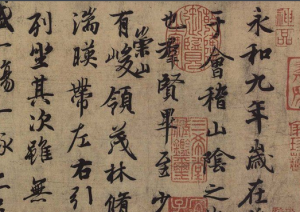 永和九年歲在
于會稽山陰之
也羣賢畢至少
有崇山峻領茂林脩
湍暎帶左右引
列坐其次雖無
一觴一詠
神品